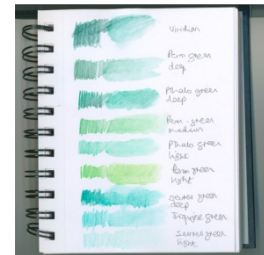 Viridian
Perm green
deep
Phalo green
deep
Perm. green
medium
Phalo green
light
Perm green
light
green
deep
Turquoise green
green
light